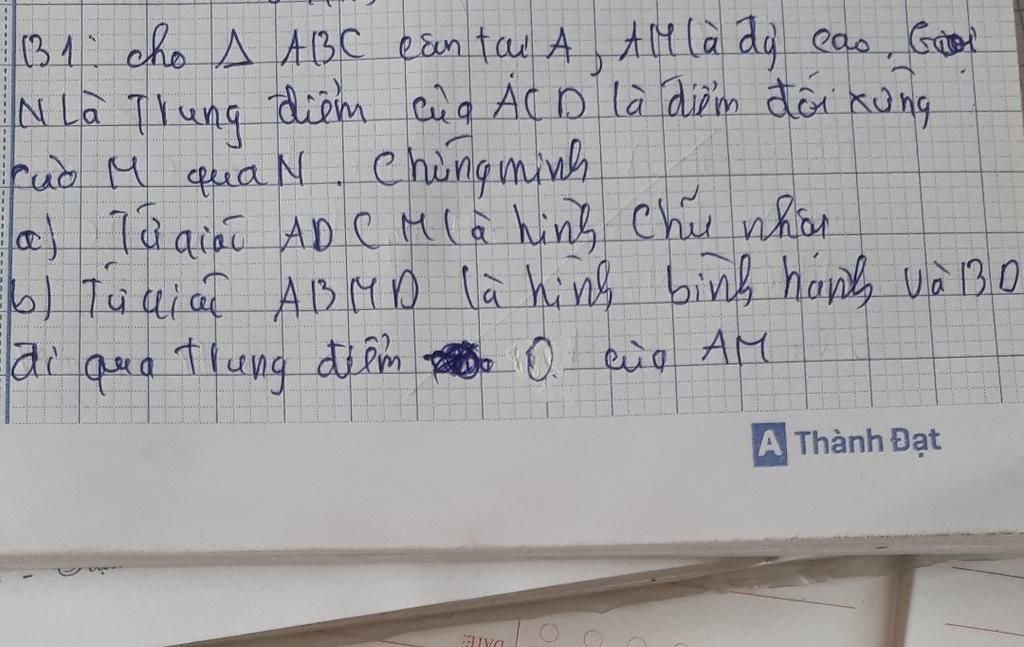 B1: cho Δ ABC cân tại A, AM là dg cao. Gọi
N là Trung điểm của AC D là điểm đối xứng
của M qua N. Chứng minh
a) Tứ giác ADCM là hình chữ nhật
b) Tứ giác ABMD là hình bình hành và BD
đi qua trung điểm O của AM
A Thành Đạt
DATE: